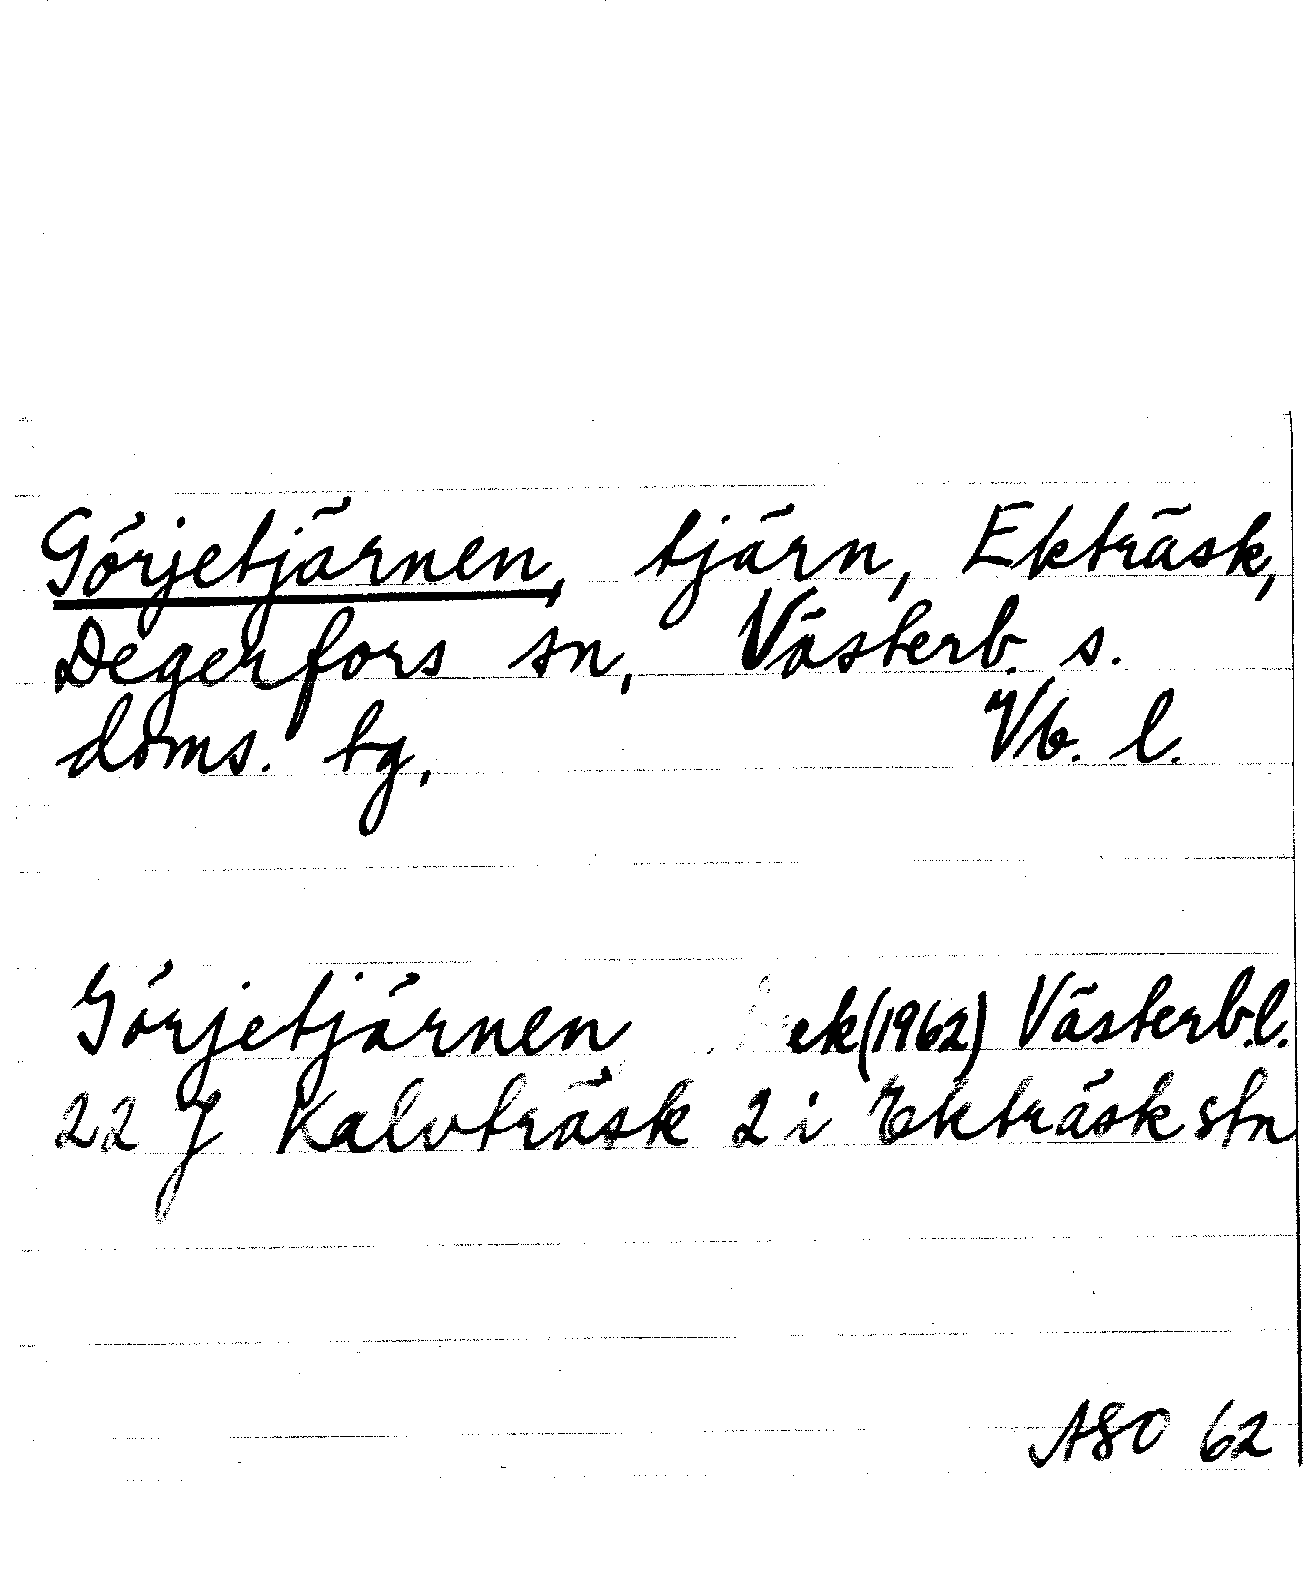 Görjetjärnen, tjärn, Ekträsk,
Degerfors sn, Västerb. s.
doms. tg, Vb. l.
Görjetjärnen ek (1962) Västerb.l.
22 J Kalvträsk 2 i Ekträsk stn
ASO 62